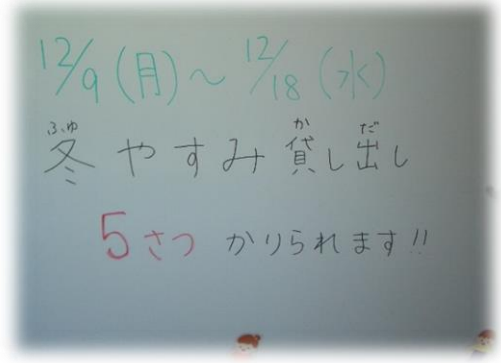 12/9(月)~12/18(水)
冬やすみ貸し出し
5さつ かりられます!!